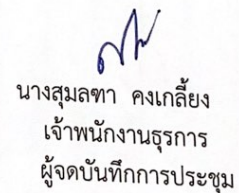 นางสุมลฑา คงเกลี้ยง
เจ้าพนักงานธุรการ
ผู้จดบันทึกการประชุม